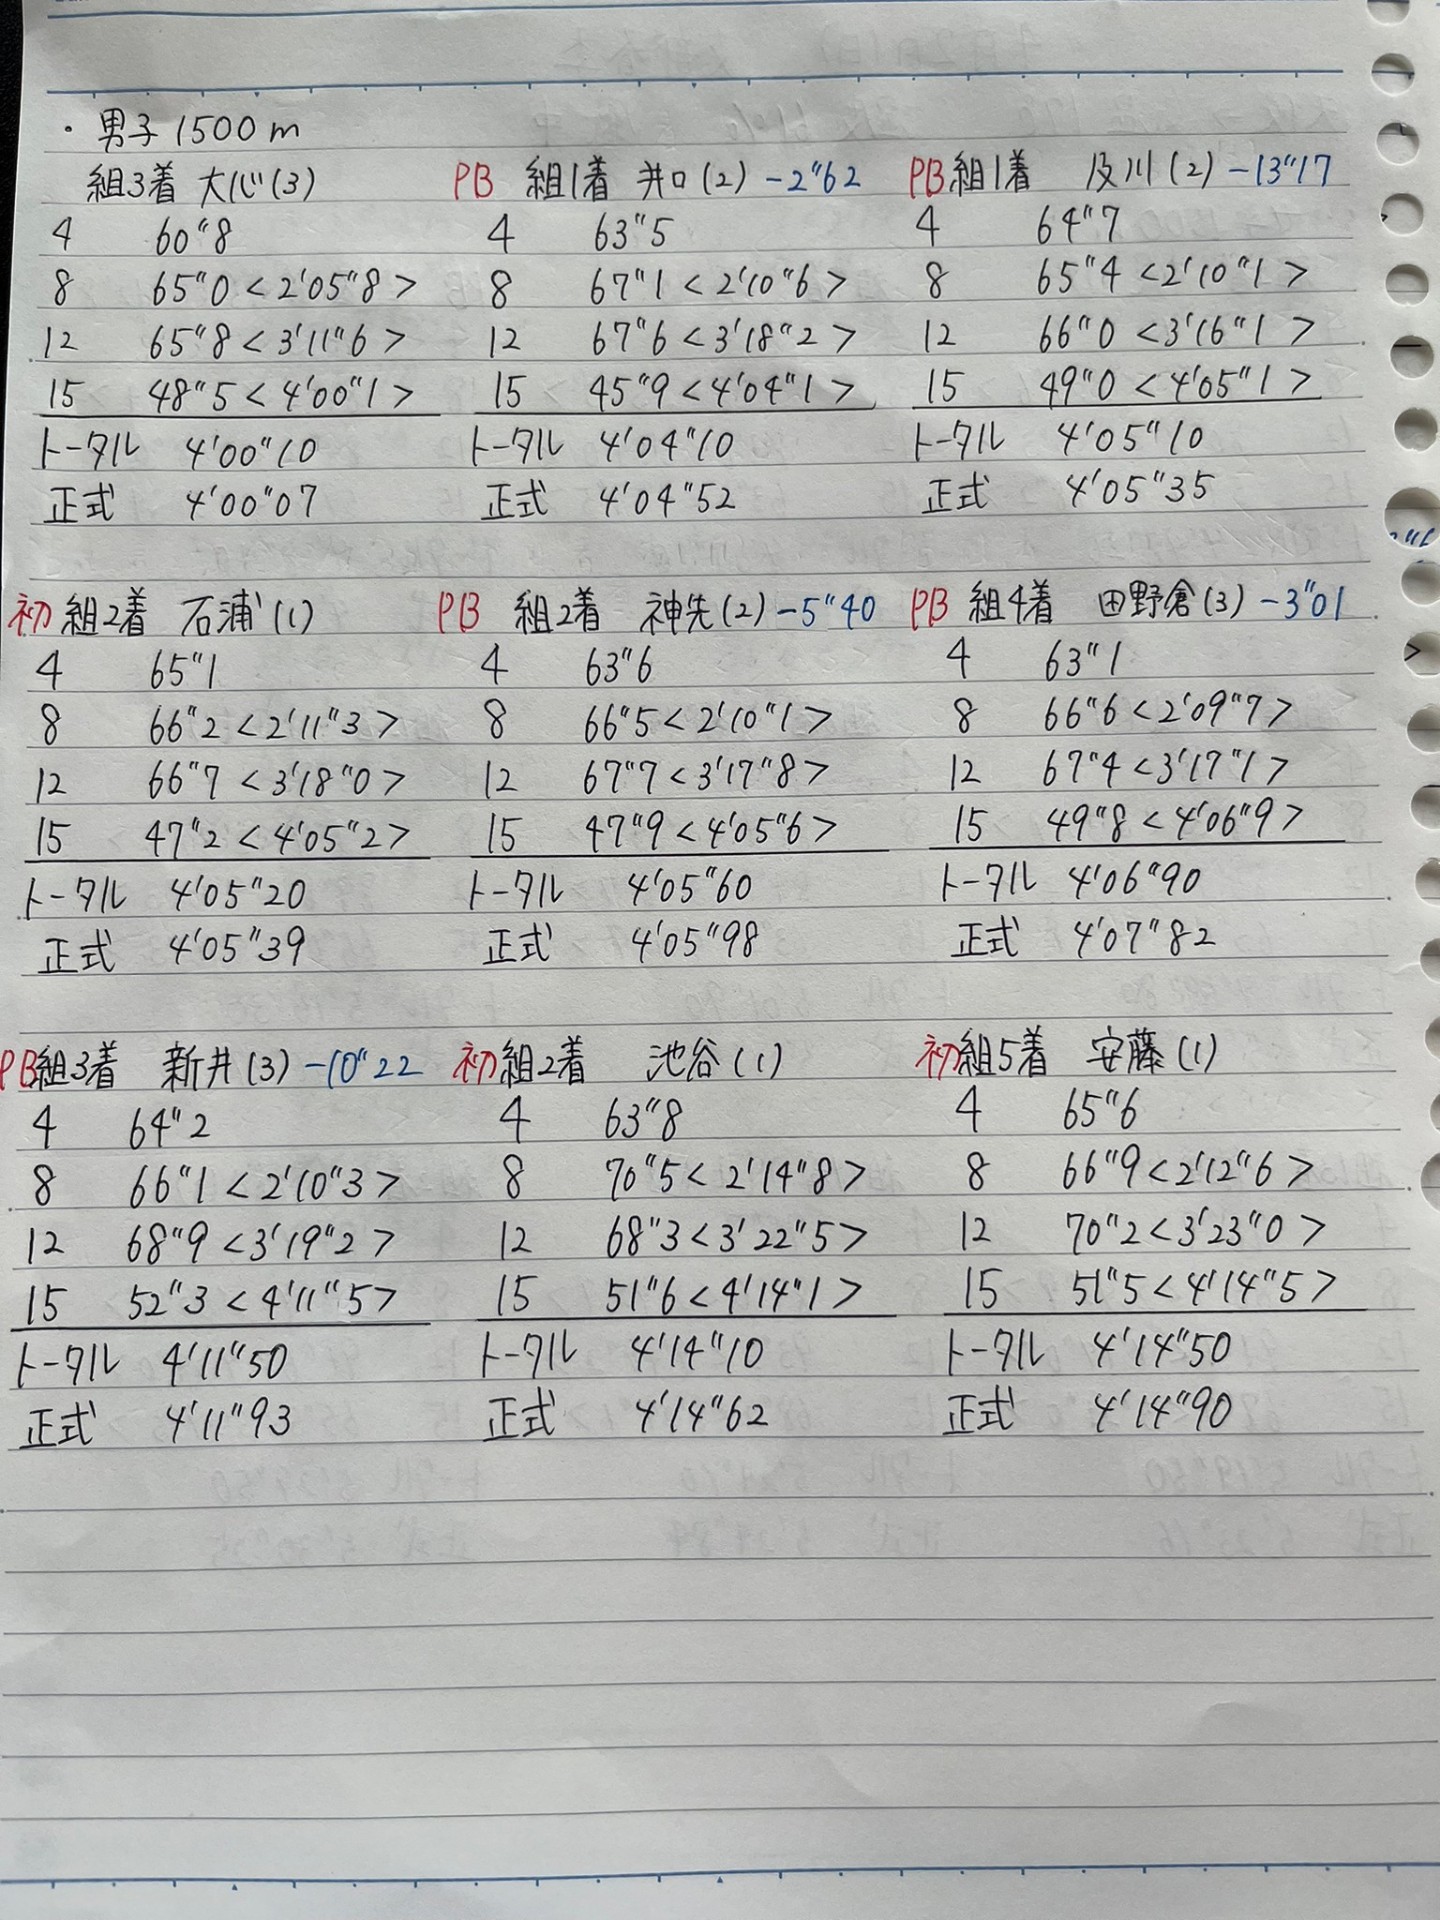 ・男子1500m
組3着 大心(3)
4 60"8
8 65"0<2'05"8>
12 65"8<3'11"6>
15 48"5<4'00"1>
トータル 4'00"10
正式 4'00"07
PB 組1着 井口(2) -2"62
4 63"5
8 67"1<2'10"6>
12 67"6<3'18"2>
15 45"9<4'04"1>
トータル 4'04"10
正式 4'04"52
PB 組1着 及川(2) -13"17
4 64"7
8 65"4<2'10"1>
12 66"0<3'16"1>
15 49"0<4'05"1>
トータル 4'05"10
正式 4'05"35
初 組2着 石浦(1)
4 65"1
8 66"2<2'11"3>
12 66"7<3'18"0>
15 47"2<4'05"2>
トータル 4'05"20
正式 4'05"39
PB 組2着 神先(2) -5"40
4 63"6
8 66"5<2'10"1>
12 67"7<3'17"8>
15 47"9<4'05"6>
トータル 4'05"60
正式 4'05"98
PB 組4着 田野倉(3) -3"01
4 63"1
8 66"6<2'09"7>
12 67"4<3'17"1>
15 49"8<4'06"9>
トータル 4'06"90
正式 4'07"82
PB 組3着 新井(3) -10"22
4 64"2
8 66"1<2'10"3>
12 68"9<3'19"2>
15 52"3<4'11"5>
トータル 4'11"50
正式 4'11"93
初 組2着 池谷(1)
4 63"8
8 70"5<2'14"8>
12 68"3<3'22"5>
15 51"6<4'14"1>
トータル 4'14"10
正式 4'14"62
初 組5着 安藤(1)
4 65"6
8 66"9<2'12"6>
12 70"2<3'23"0>
15 51"5<4'14"5>
トータル 4'14"50
正式 4'14"90